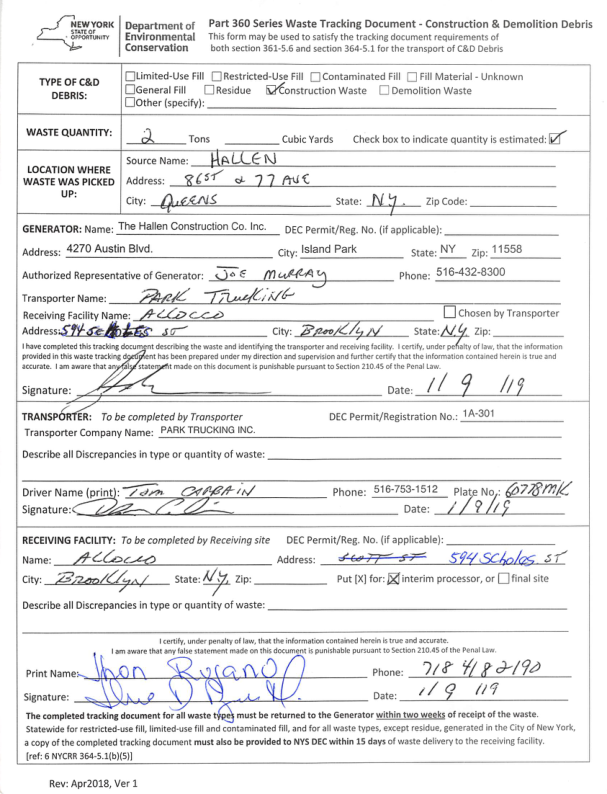 NEW YORK STATE OF OPPORTUNITY
Department of Environmental Conservation
Part 360 Series Waste Tracking Document - Construction & Demolition Debris
This form may be used to satisfy the tracking document requirements of
both section 361-5.6 and section 364-5.1 for the transport of C&D Debris
TYPE OF C&D DEBRIS:
☐Limited-Use Fill ☐Restricted-Use Fill ☐Contaminated Fill ☐Fill Material - Unknown
☐General Fill ☐Residue ☑Construction Waste ☐Demolition Waste
☐Other (specify):
WASTE QUANTITY: 2 Tons Cubic Yards Check box to indicate quantity is estimated: ☑
LOCATION WHERE WASTE WAS PICKED UP:
Source Name: HALLEN
Address: 86ST & 77 AVE
City: QUEENS State: NY. Zip Code:
GENERATOR: Name: The Hallen Construction Co. Inc. DEC Permit/Reg. No. (if applicable):
Address: 4270 Austin Blvd. City: Island Park State: NY Zip: 11558
Authorized Representative of Generator: JOE MURRAY Phone: 516-432-8300
Transporter Name: PARK TRUCKING
Receiving Facility Name: ALLOCCO ☐ Chosen by Transporter
Address: 594 SCHOLES ST City: BROOKLYN State: NY Zip:
I have completed this tracking document describing the waste and identifying the transporter and receiving facility. I certify, under penalty of law, that the information
provided in this waste tracking document has been prepared under my direction and supervision and further certify that the information contained herein is true and
accurate. I am aware that any false statement made on this document is punishable pursuant to Section 210.45 of the Penal Law.
Signature: Date: 1/9/19
TRANSPORTER: To be completed by Transporter DEC Permit/Registration No.: 1A-301
Transporter Company Name: PARK TRUCKING INC.
Describe all Discrepancies in type or quantity of waste:
Driver Name (print): Tom Phone: 516-753-1512 Plate No.: 60778MK
Signature: Date: 1/9/19
RECEIVING FACILITY: To be completed by Receiving site DEC Permit/Reg. No. (if applicable):
Name: ALLOCCO Address: SCOTT ST 594 SCholes ST
City: BROOKLYN State: NY, Zip: Put [X] for: ☒ interim processor, or ☐ final site
Describe all Discrepancies in type or quantity of waste:
I certify, under penalty of law, that the information contained herein is true and accurate.
I am aware that any false statement made on this document is punishable pursuant to Section 210.45 of the Penal Law.
Print Name: Jhon Phone: 718 418 2190
Signature: Date: 1/9/19
The completed tracking document for all waste types must be returned to the Generator within two weeks of receipt of the waste.
Statewide for restricted-use fill, limited-use fill and contaminated fill, and for all waste types, except residue, generated in the City of New York,
a copy of the completed tracking document must also be provided to NYS DEC within 15 days of waste delivery to the receiving facility.
[ref: 6 NYCRR 364-5.1(b)(5)]
Rev: Apr2018, Ver 1